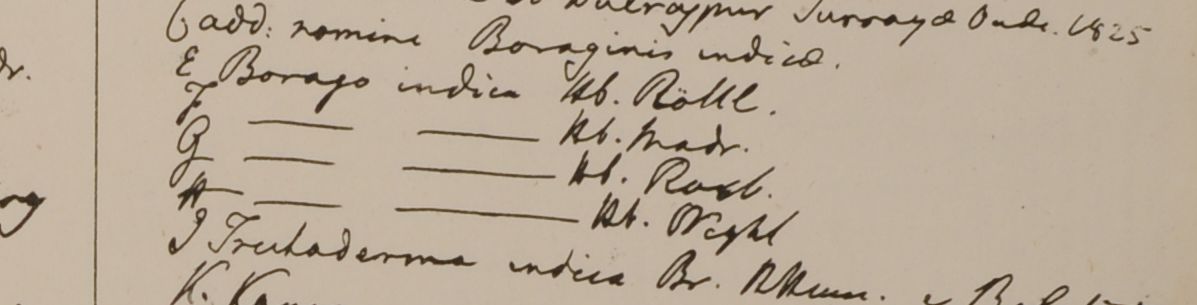 Surrayæ Oude. 1825
(add: nomine Boraginis indicæ.
E Borago indica Hb. Röttl.
F — — Hb. Madr.
G — — Hb. Roxb.
H — — Hb. Wight
I Trichoderma indica Br.
K.